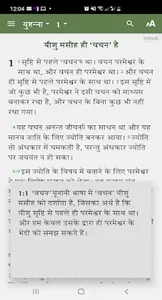 12:04
61%
युहन्ना 1
HINDI
यीशु मसीह ही 'वचन' है
1 सृष्टि से पहले 'वचन' था। वचन परमेश्वर के
साथ था, और वचन ही परमेश्वर था। 2 और वचन
ही सृष्टि से पहले परमेश्वर के साथ था। 3 इस सृष्टि में
जो कुछ भी है, परमेश्वर ने इसी वचन को माध्यम
बनाकर रचा है, और वचन के बिना कुछ भी नहीं
रचा गया।
4 यह वचन अनन्त जीवन का साधन था और यह
मानव जाति के लिए ज्योति बनकर आया। 5 ज्योति
तो अंधकार में चमकती है, परन्तु अंधकार ज्योति
पर जयवंत न हो सका।
6 इस ज्योति के विषय में बताने के लिए परमेश्वर
1:1 'वचन' यूनानी भाषा में 'वचन' यीशु
मसीह को दर्शाता है, जिसका अर्थ है कि
यीशु सृष्टि से पहले ही परमेश्वर के साथ था।
और हम केवल उसके द्वारा ही परमेश्वर के
भेदों को समझ सकते हैं।